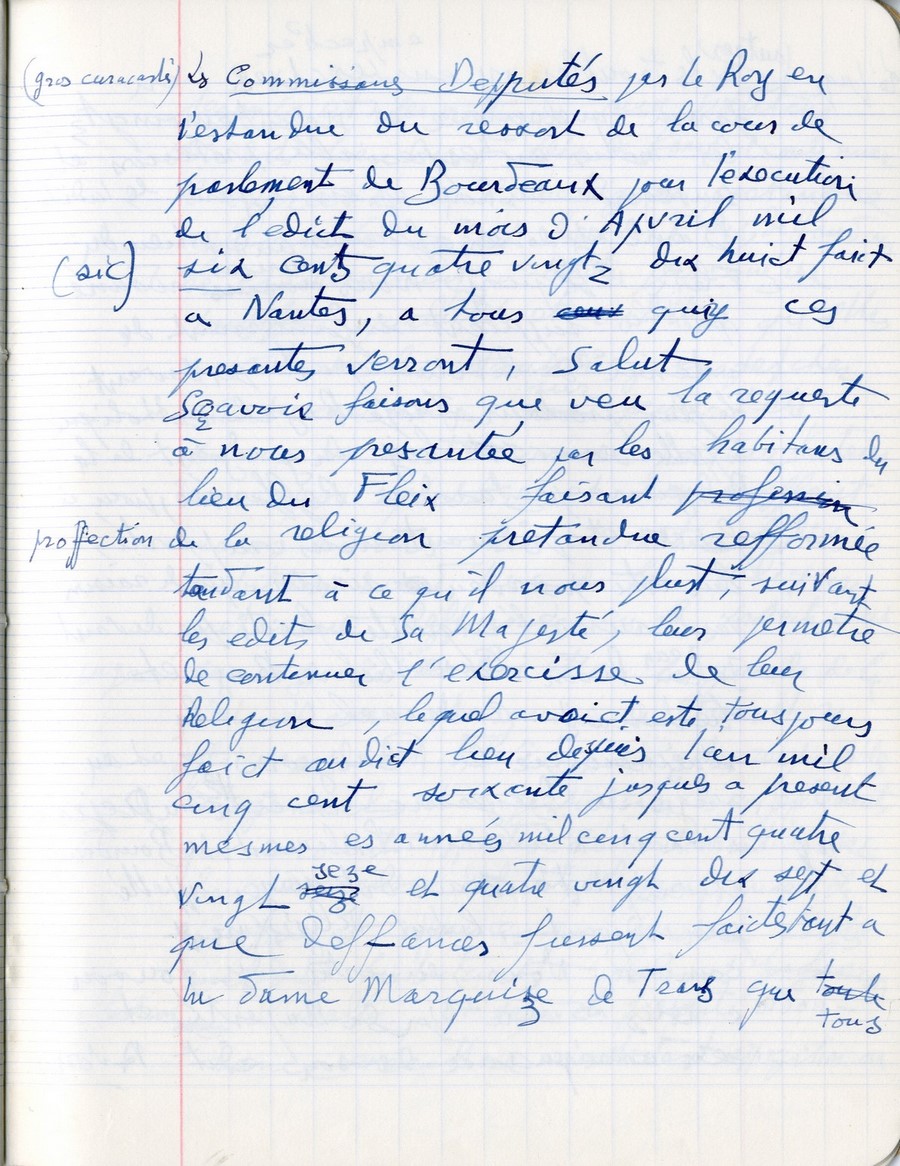 (gros caracartès) Ls Commissaires Depputés par le Roy en
l'estandue du ressort de la cour de
parlement de Bourdeaux pour l'execution
de l'edict du mois d'Apvril mil
(sic) six centz quatre vingtz dix huict faict
a Nantes, a tous ceux quiy ces
presantes verront, Salut
Sçavoir faisons que veu la requeste
à nous presantée par les habitans du
lieu du Fleix faisant profession
proffection de la religion pretandue refformée
tandant à ce qu'il nous plust, suivant
les edits de Sa Majesté, leur permetre
de contenuer l'exercisse de leur
Religion, lequel avoict este tousjours
faict audict lieu depuis l'an mil
cinq cent soixante jusques a present
mesmes es années mil cinq cent quatre
vingt seze seze et quatre vingt dix sept et
que deffances fussent faictes tant a
la dame Marquize de Trans que toute
tous